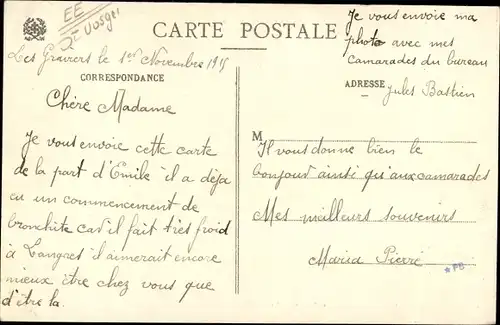 EE
2I Vosges
CARTE POSTALE
Je vous envoie ma
photo avec mes
camarades du bureau
Les Graviers le 1er Novembre 1915
CORRESPONDANCE
ADRESSE
Jules Bastien
Chère Madame
Je vous envoie cette carte
de la part d'Emile il a déja
eu un commencement de
bronchite car il fait très froid
à Langres il aimerait encore
mieux être chez vous que
d'être la.
M
Il vous donne bien le
bonjour ainsi qu'aux camarades
Mes meilleurs souvenirs
Maria Pierré
*PB